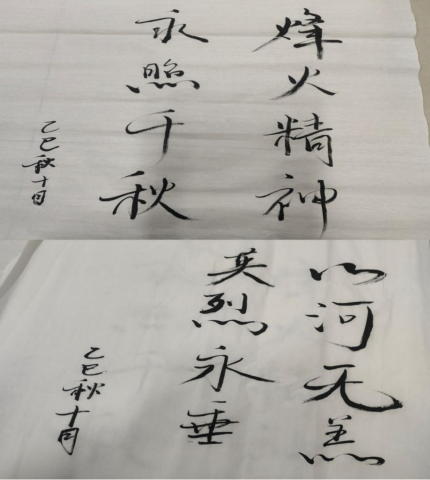 烽火精神
永照千秋
乙巳秋十月
山河无恙
英烈永垂
乙巳秋十月